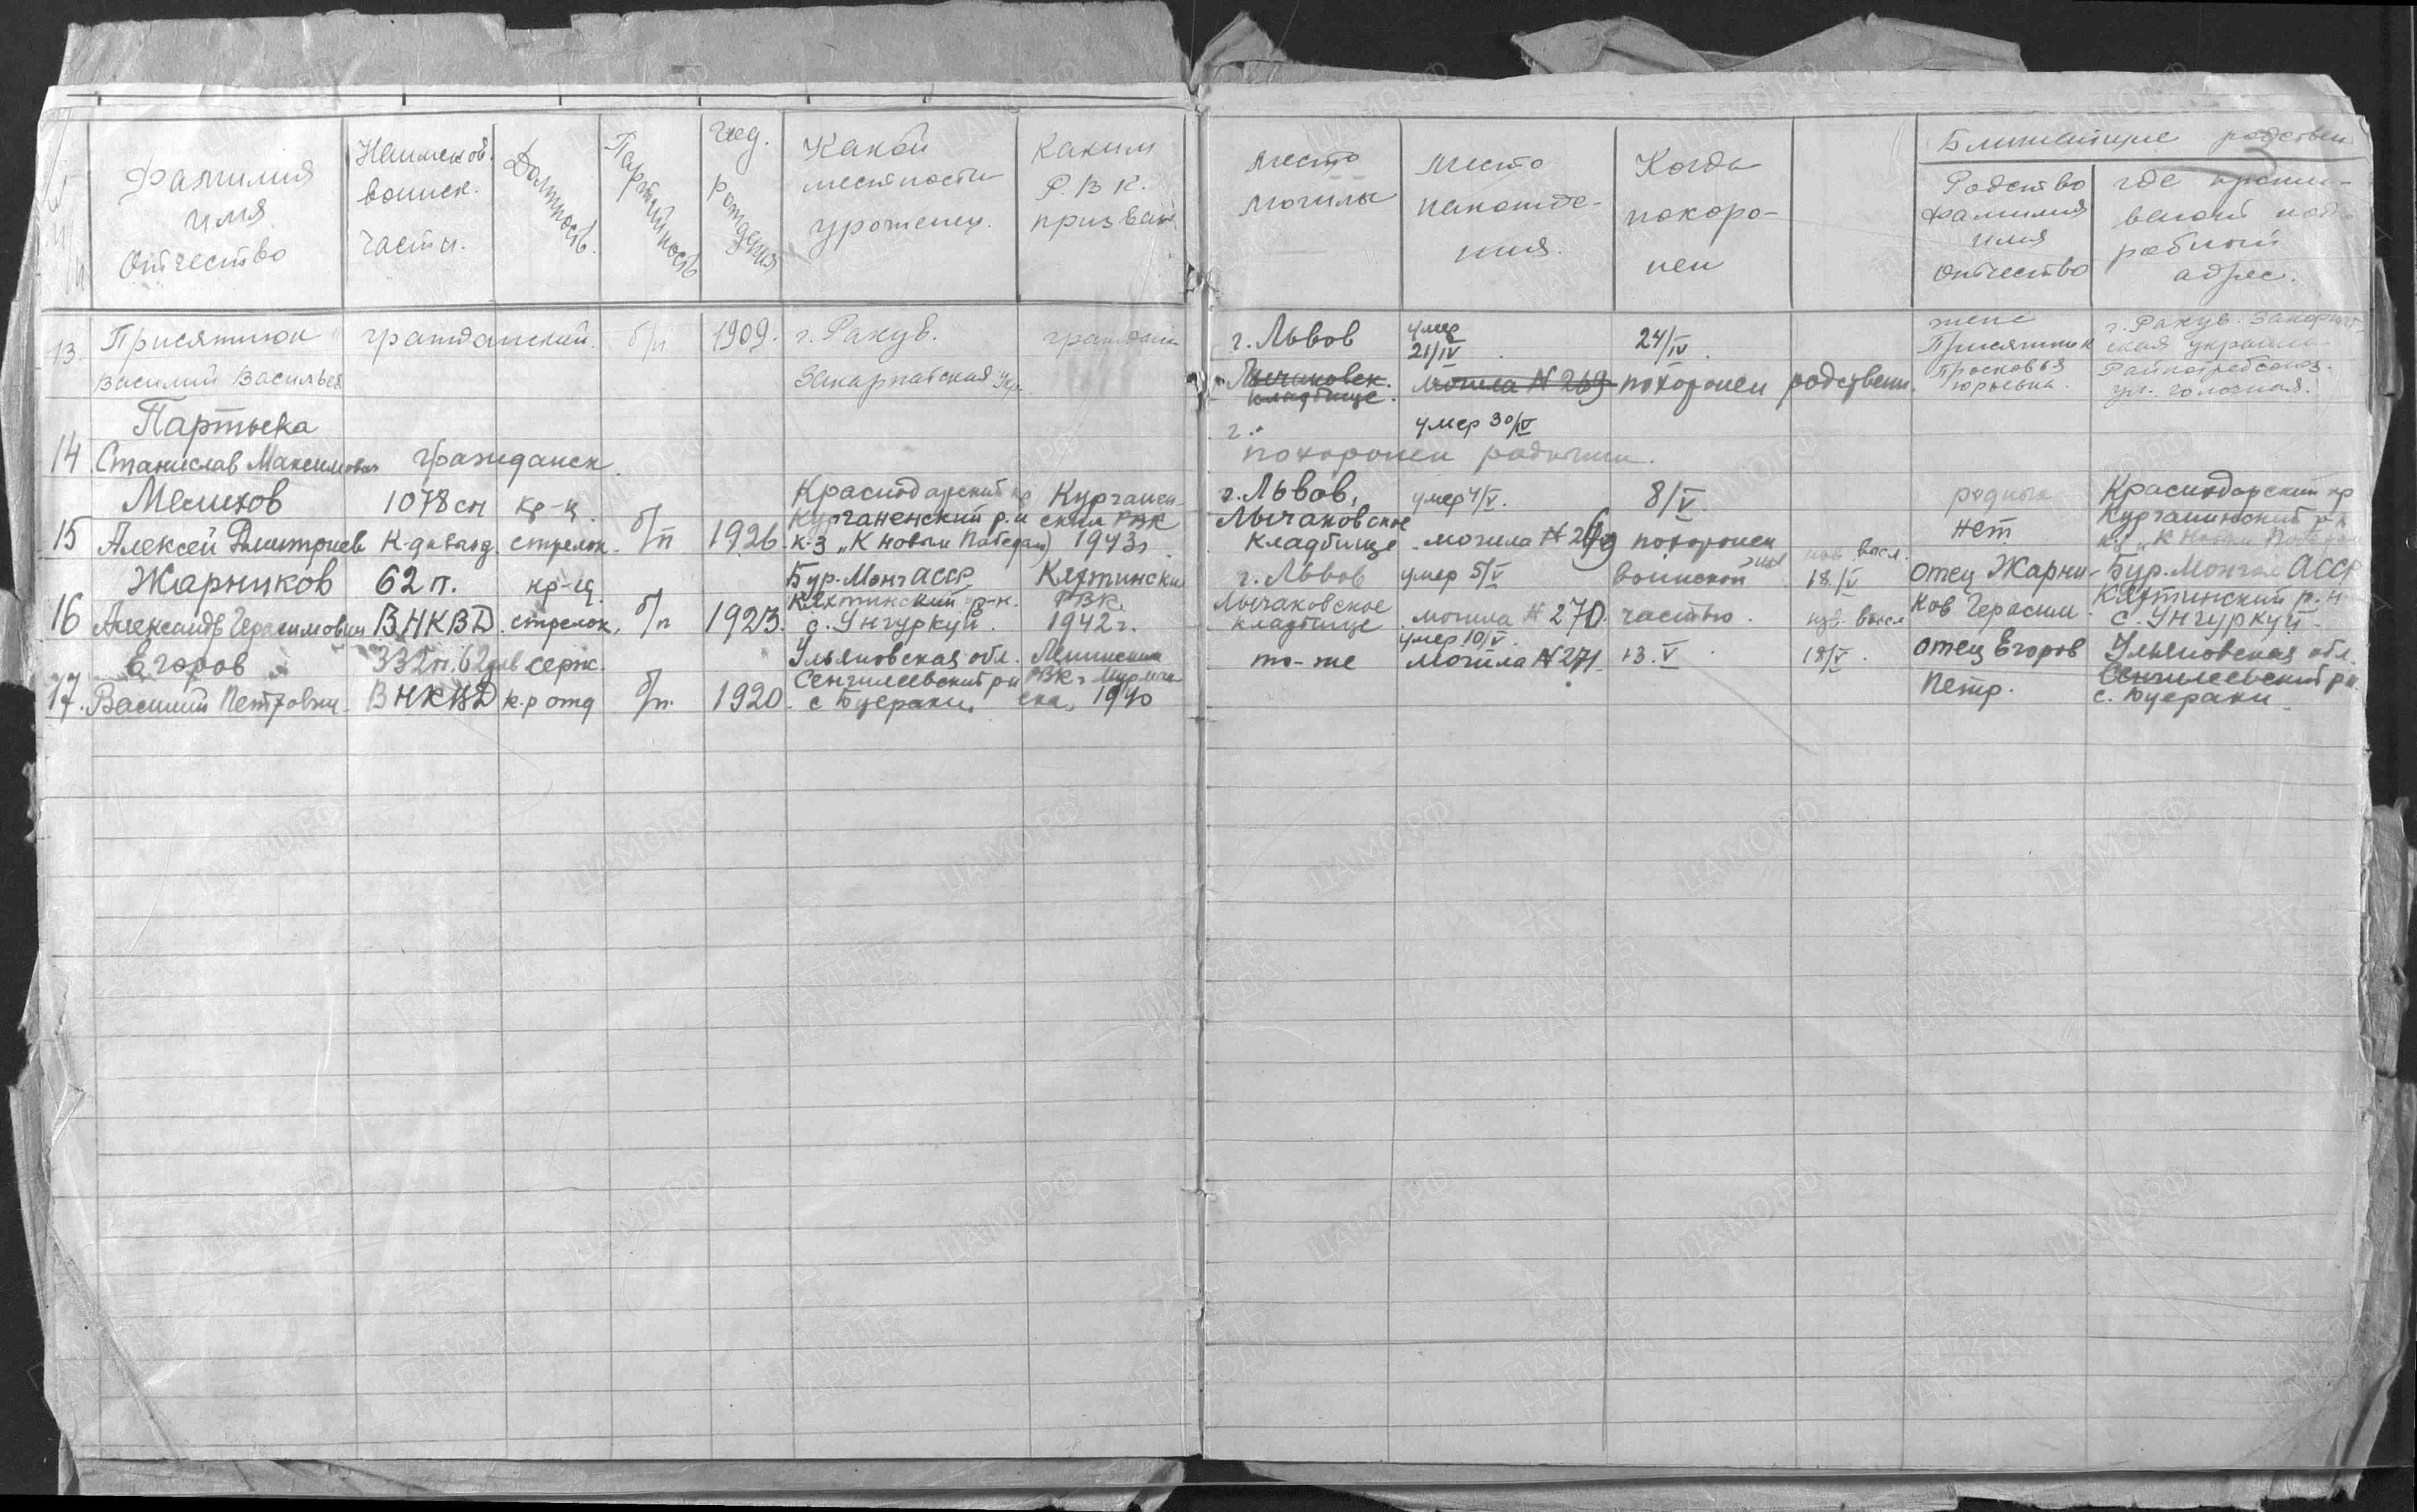 Фамилия имя отчество
Наименов. воинск. части.
Должность.
Партийность
Год. рождения
Какой местности уроженец.
Каким Р.В.К. призван
место могилы
место нахожде-
ния.
Когда похоро-
нен
Ближайшие родствен
Родство фамилия имя отчество
где прожи-
вают
адрес.
13. Присяжнюк гражданский. б/п. 1909. г. Рахув. граждан г. Львов умер 21/IV 24/IV жена г. Рахув. Закарпат-
Василий Васильев Закарпатская Укр. Лычаковск. кладбище. могила N 269 похоронен родствен. Присяжнюк Просковья Юрьевна. ская украина Райпотребсоюз.
Партыка г. умер 30/IV
14 Станислав Максимович гражданск. похоронен родными.
Мелихов 1078 сп кр-ц. Краснодарский кр Курганен- г. Львов, умер 4/V. 8/V. родных Краснодарский кр
15 Алексей Дмитриев стрелок. б/п 1926. Курганенский р.н к-з „К новым Победам) ский РВК 1943г. Лычаковское кладбище могила N 269 похоронен нет Курганинский р-н
Жарников 62 п. кр-ц. Бур.-Монг АССР Кяхтински г. Львов умер 5/V воинской 18/V отец Жарни- Бур. Монгол АССР
16 Александр Герасимович ВНКВД. стрелок. б/п 1923. Кяхтинский р-н. с. Унгуркуй. РВК. 1942г. Лычаковское кладбище могила N 270. частью. ков Герасим Кяхтинский р.н с. Унгуркуй.
Егоров 332п. 62див серж. Ульяновская обл. Ленинским то-же умер 10/V. могила N 271 13.V 18/V. отец Егоров Ульяновская обл.
17. Василий Петрович ВНКВД к-р отд б/п. 1920. Сенгилеевский р-н с Буераки. РВК г. Мурман ска, 1940 Петр. Сенгилеевский р-н. с. Буераки